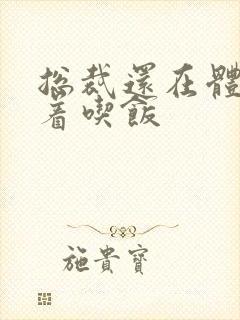 總裁還在體
着喫飯
施貴寶